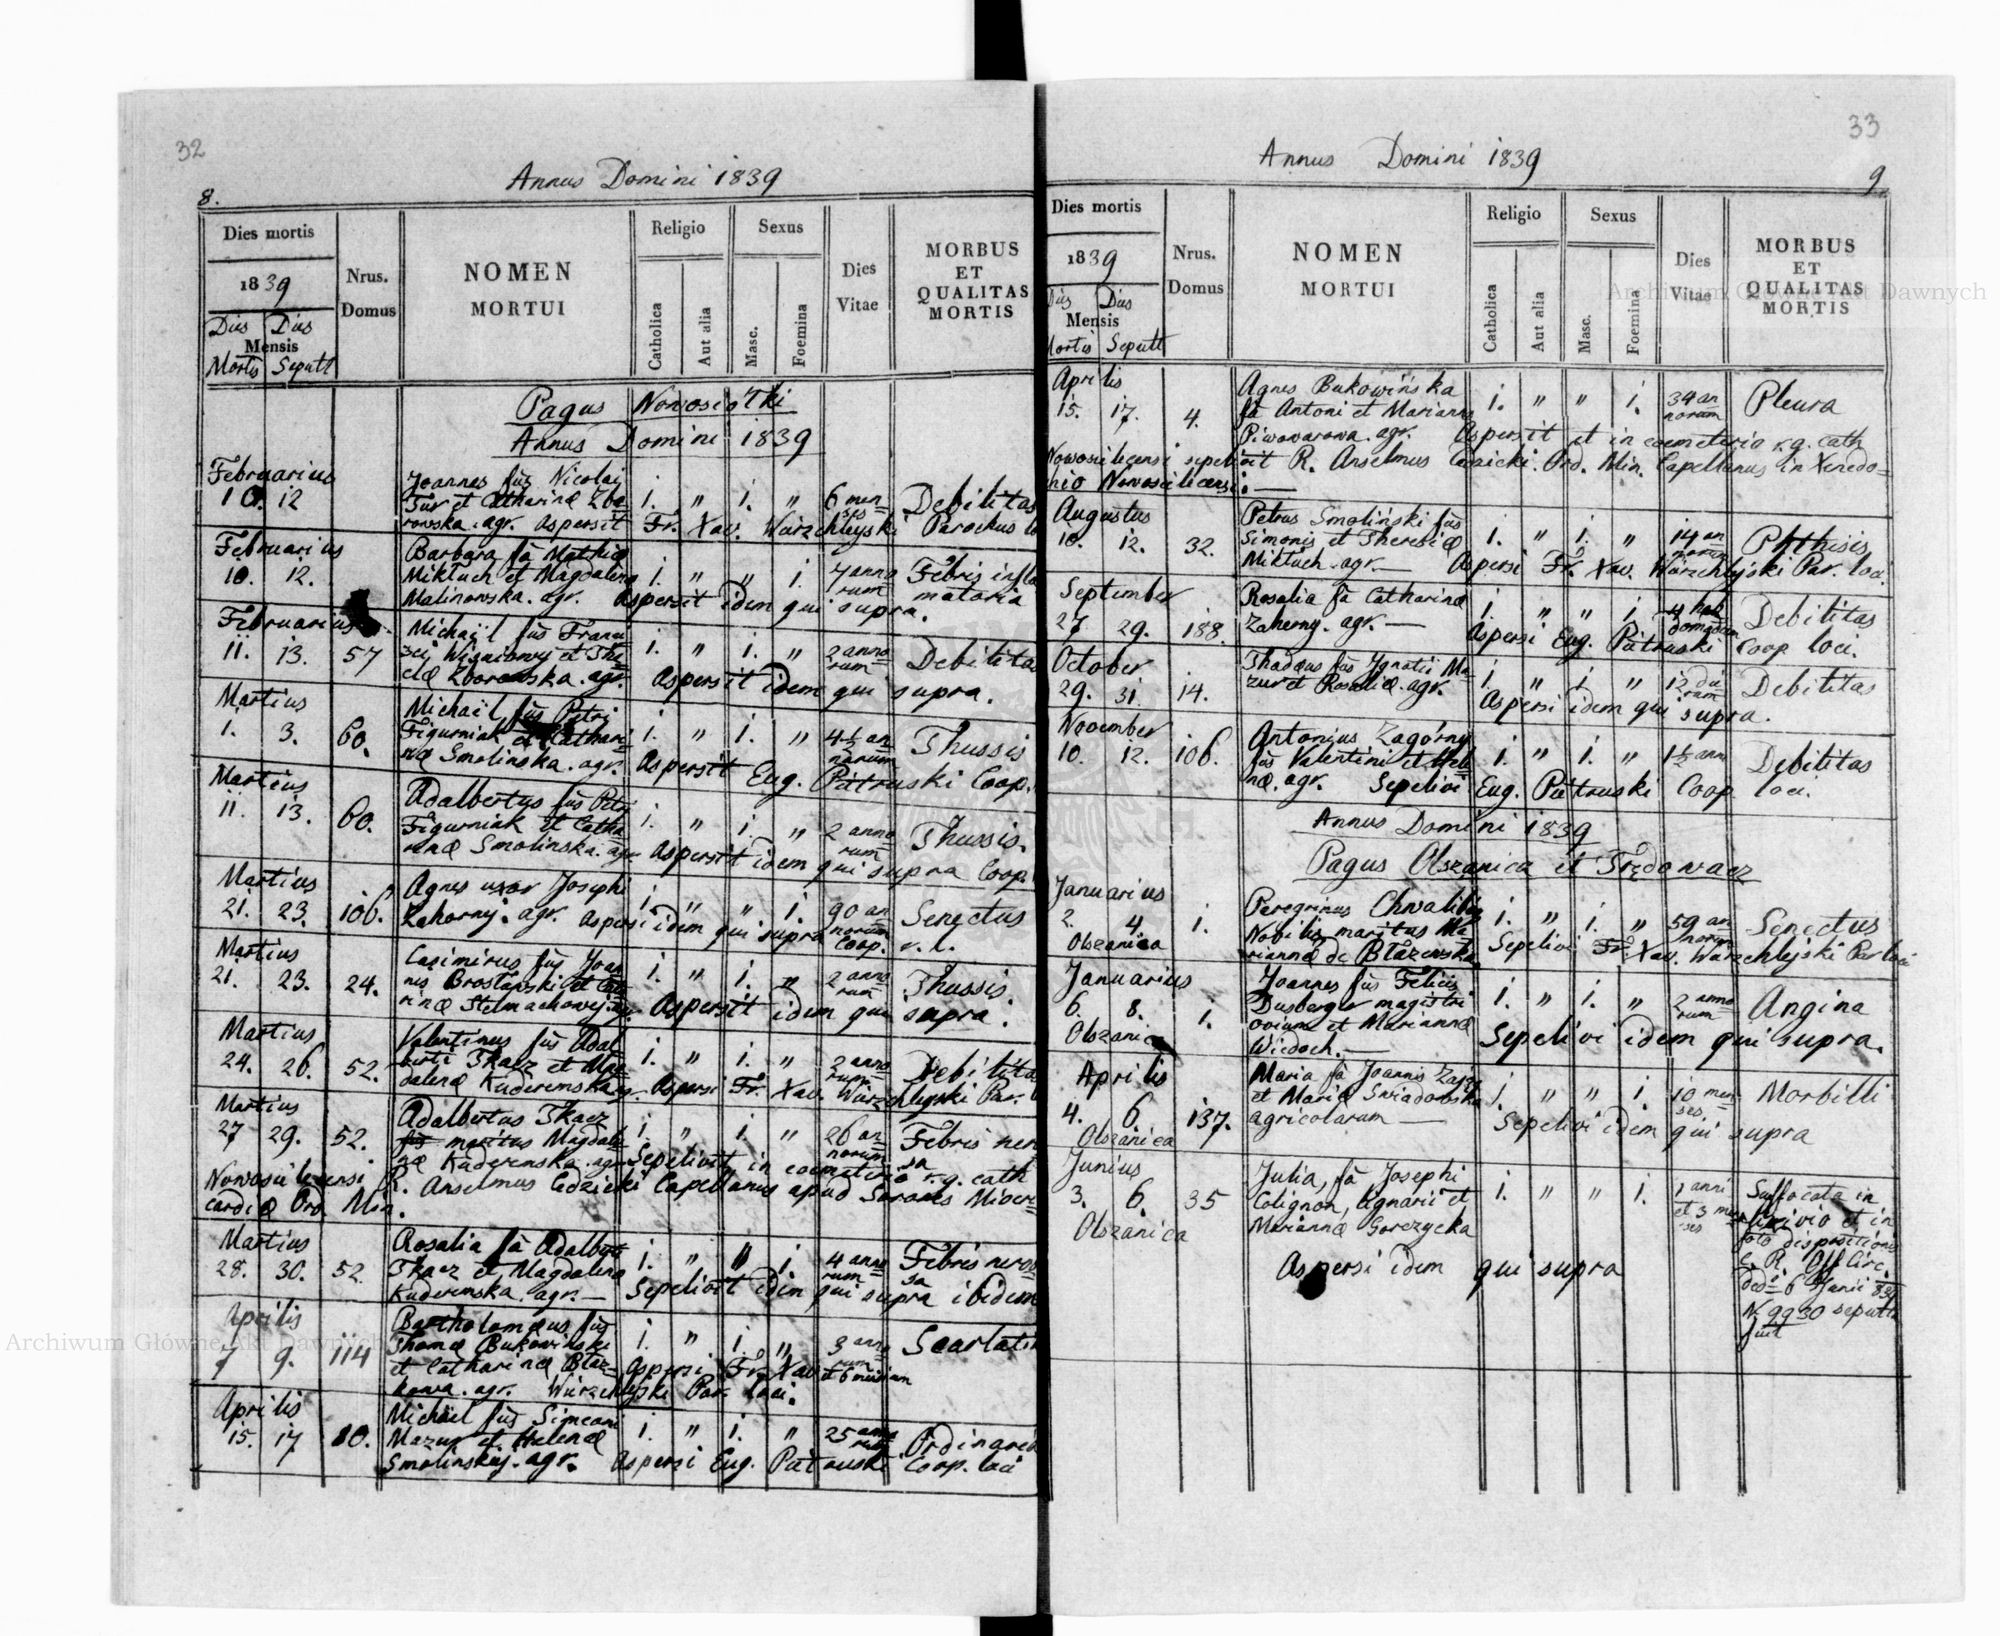 32
Annus Domini 1839
8.
Dies mortis
1839
Dies Dies
Mensis
Mortis Sepult
Nrus.
Domus
NOMEN
MORTUI
Religio
Catholica
Aut alia
Sexus
Masc.
Foemina
Dies
Vitae
MORBUS
ET
QUALITAS
MORTIS
Pagus Nowosiołki
Annus Domini 1839
Februarius
10. 12
Joannes fus Nicolai
Tur et Catharinæ Zbo=
rowska. agr. Aspersit Fr. Xav. Wurzchleyski Parochus
1. " 1. " 6 men
ses
Debilitas
Februarius
10. 12.
Barbara fa Mathiæ
Miktuch et Magdalena
Malinowska. agr. Aspersit idem qui supra.
1. " " 1. 7 anno
rum
Febris infla
matoria
Februarius
11. 13. 57
Michaël fus Franci
sci Wisniowy et The=
clæ Zborowska. agr. Aspersit idem qui supra.
1. " 1. " 2 anno
rum
Debilita
Martius
1. 3. 60.
Michaël fus Petri
Figurniak et Cathari=
næ Smolinska. agr. Aspersit Eug. Pátruski Coop.
1. " 1. " 4½ an
norum
Thussis
Martius
11. 13. 60.
Adalbertus fus Petri
Figurniak et Catha
rinæ Smolinska. agr. Aspersit idem qui supra Coop.
1. " 1. " 2 anno
rum
Thussis.
Martius
21. 23. 106.
Agnes uxor Josephi
Zahorny. agr. Aspersi idem qui supra Coop. v. l.
1. " " 1. 90 an
norum
Senectus
Martius
21. 23. 24.
Casimirus fus Joan
nis Brostanski et Cat
rinæ Stelmachowej. agr. Aspersit idem qui supra.
1. " 1. " 2 anno
rum
Thussis.
Martius
24. 26. 52.
Valentinus fus Adal
berti Tkacz et Mag
dalenæ Kuderemska agr. Aspersi Fr. Xav. Wurzchleyski Par.
1. " 1. " 2 anno
rum
Debilita
Martius
27 29. 52.
Adalbertus Tkacz
fus maritus Magdale
næ Kuderemska. agr. Sepelivit in coemeterio r. g. cath
Nowosielecensi R. Anselmus Cedzicki Capellanus apud Sorores Miseri=
cordiæ Ord. Min.
1. " 1. " 26 an
norum
Febris ner
sa
Martius
28. 30. 52.
Rosalia fa Adalberti
Tkacz et Magdalena
Kuderemska. agr. — Sepelivit idem qui supra ibidem
1. " " 1. 4 anno
rum
Febris nervo
sa
Aprilis
7 9. 114
Bartholomæus fus
Thomæ Bukowinski
et Catharinæ Błaz=
kowa. agr. Aspersi Fr. Xav.
Wurzchlyski Par. loci.
1. " 1. " 3 anno
rum
et 6 mensium
Scarlatin
Aprilis
15. 17 80.
Michaël fus Simeoni
Mazur et Helenæ
Smolinskiej. agr. Aspersi Eug. Pátruski Coop. loci
1. " 1. " 25 anno
rum
Ordinaria
33
Annus Domini 1839
9
Dies mortis
1839
Dies Dies
Mensis
Mortis Sepult
Nrus.
Domus
NOMEN
MORTUI
Religio
Catholica
Aut alia
Sexus
Masc.
Foemina
Dies
Vitae
MORBUS
ET
QUALITAS
MORTIS
Aprilis
15. 17. 4.
Agnes Bukowińska
fa Antoni et Marianna
Piwowarowa. agr. Aspersit et in coemeterio r. g. cath
Nowosielecensi sepelivit R. Anselmus Cedzicki. Ord. Min. Capellanus in Xenodo=
chio Nowosielecensi. —
1. " " 1. 34 an
norum
Pleura
Augustus
10. 12. 32.
Petrus Smoliński fus
Simonis et Theresiæ
Miktuch. agr. — Aspersi Fr. Xav. Wurzchlyski Par. loci.
1. " 1. " 14 an
norum
Phthisis
September
27 29. 188.
Rosalia fa Catharinæ
Zaherny. agr. — Aspersi Eug. Pátruski Coop loci.
1. " " 1. 4 heb
domadum
Debilitas
October
29. 31. 14.
Thadæus fus Ignatii Ma=
zur et Rosaliæ. agr. Aspersi idem qui supra.
1 " 1. " 12 die
rum
Debilitas
November
10. 12. 106.
Antonius Zagórny
fus Valentini et Hele
næ. agr. Sepelivi Eug. Pátruski Coop loci.
1. " 1. " 1½ ann
Debilitas
Annus Domini 1839
Pagus Olszanica et Trędowacz
Januarius
2. 4. 1.
Olszanica
Peregrinus Chwalibóg
Nobilis maritus Ma
rianna de Błazowska Sepelivi Fr. Xav. Wurzchlejski Par loci
1. " 1. " 59 an
norum
Senectus
Januarius
6. 8. 1.
Olszanica
Joannes fus Felicis
Dusberger magistri
ovium et Marianna
Wiedoch. — Sepelivi idem qui supra.
1. " 1. " 2 anno
rum
Angina
Aprilis
4. 6. 137.
Olszanica
Maria fa Joannis Zając
et Mariæ Swiadowska
agricolarum — Sepelivi idem qui supra
1. " " 1. 10 men
ses.
Morbilli
Junius
3. 6. 35
Olszanica
Julia, fa Josephi
Colignon, Agnarii et
Mariannæ Gorczycka
Aspersi idem qui supra
1. " " 1. 1 anni
et 3 men
ses
Suffocata in
lixivio et in
foto dispositione
C. R. Off Circ.
ddo 6 Junii 839
N. 9930 sepulta
fuit
Archiwum Główne Akt Dawnych
Archiwum Główne Akt Dawnych